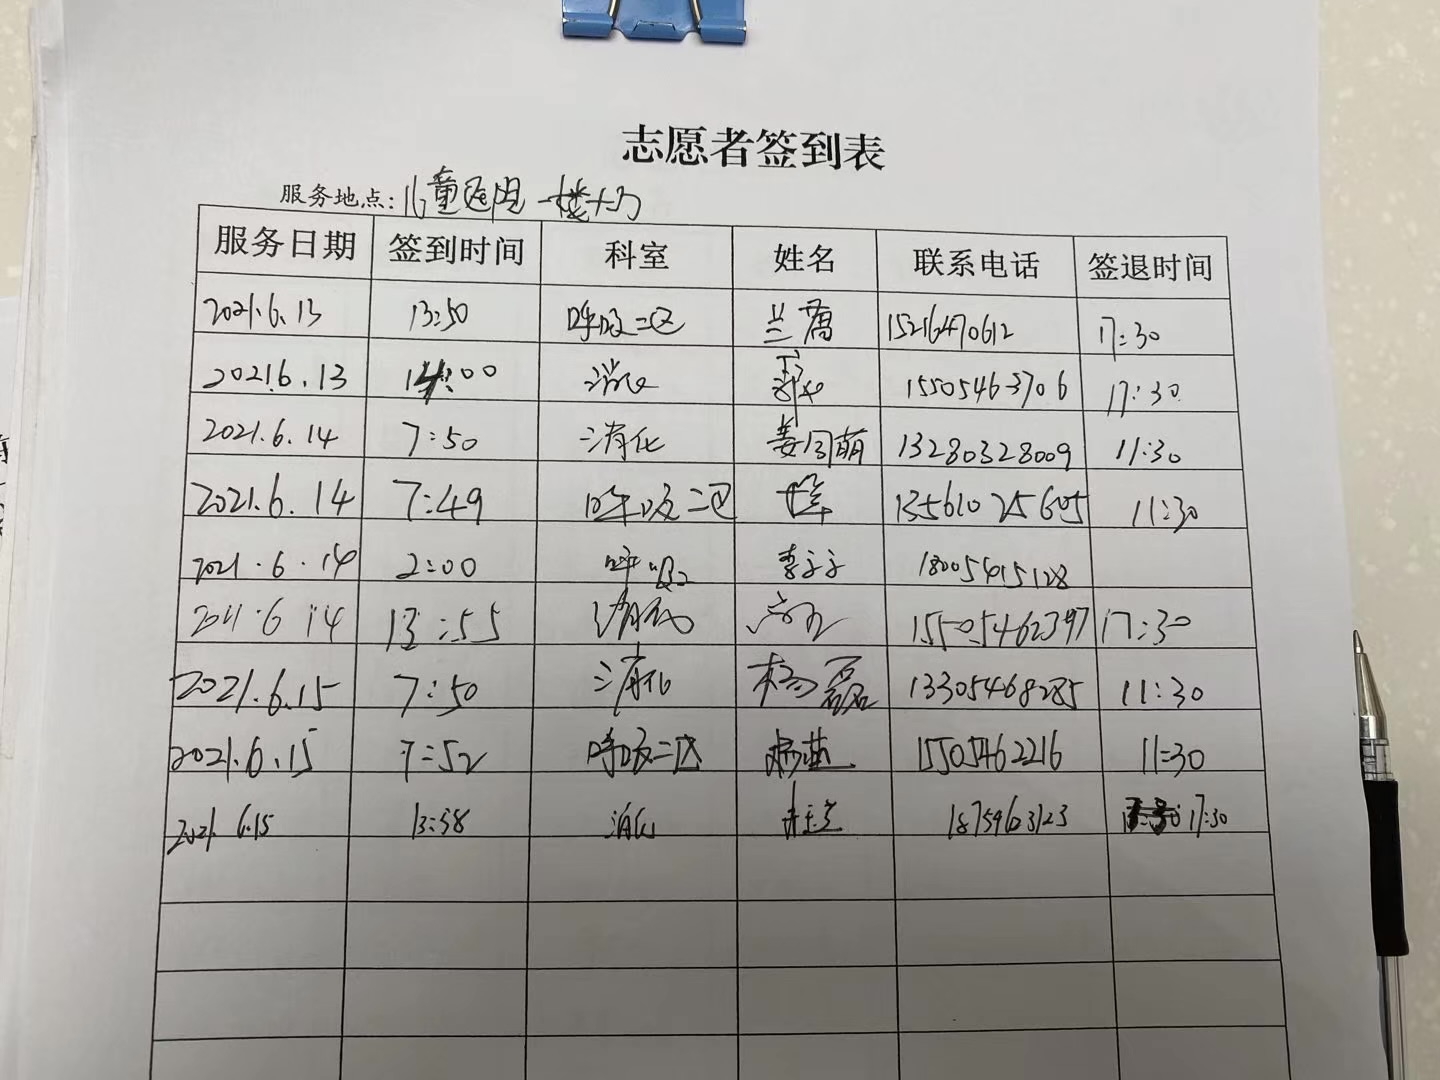 志愿者签到表
服务地点：儿童医院一楼大厅
服务日期 签到时间 科室 姓名 联系电话 签退时间
2021.6.13 13:50 呼吸二区 兰 15216470612 17:30
2021.6.13 14:00 消化 15505463706 17:30
2021.6.14 7:50 消化 姜同萌 13280328009 11:30
2021.6.14 7:49 呼吸二区 13561025605 11:30
2021.6.14 2:00 呼吸二 李 18005415128
2021.6.14 13:55 消化 15505462397 17:30
2021.6.15 7:50 消化 杨磊 13305468285 11:30
2021.6.15 7:52 呼吸二区 15505462216 11:30
2021.6.15 13:58 消化 18759603123 17:30